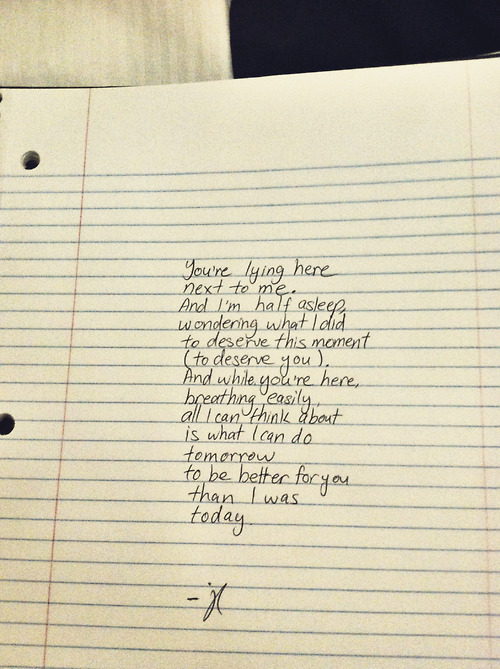 You're lying here
next to me.
And I'm half asleep,
wondering what I did
to deserve this moment
(to deserve you).
And while you're here,
breathing easily,
all I can think about
is what I can do
tomorrow
to be better for you
than I was
today.